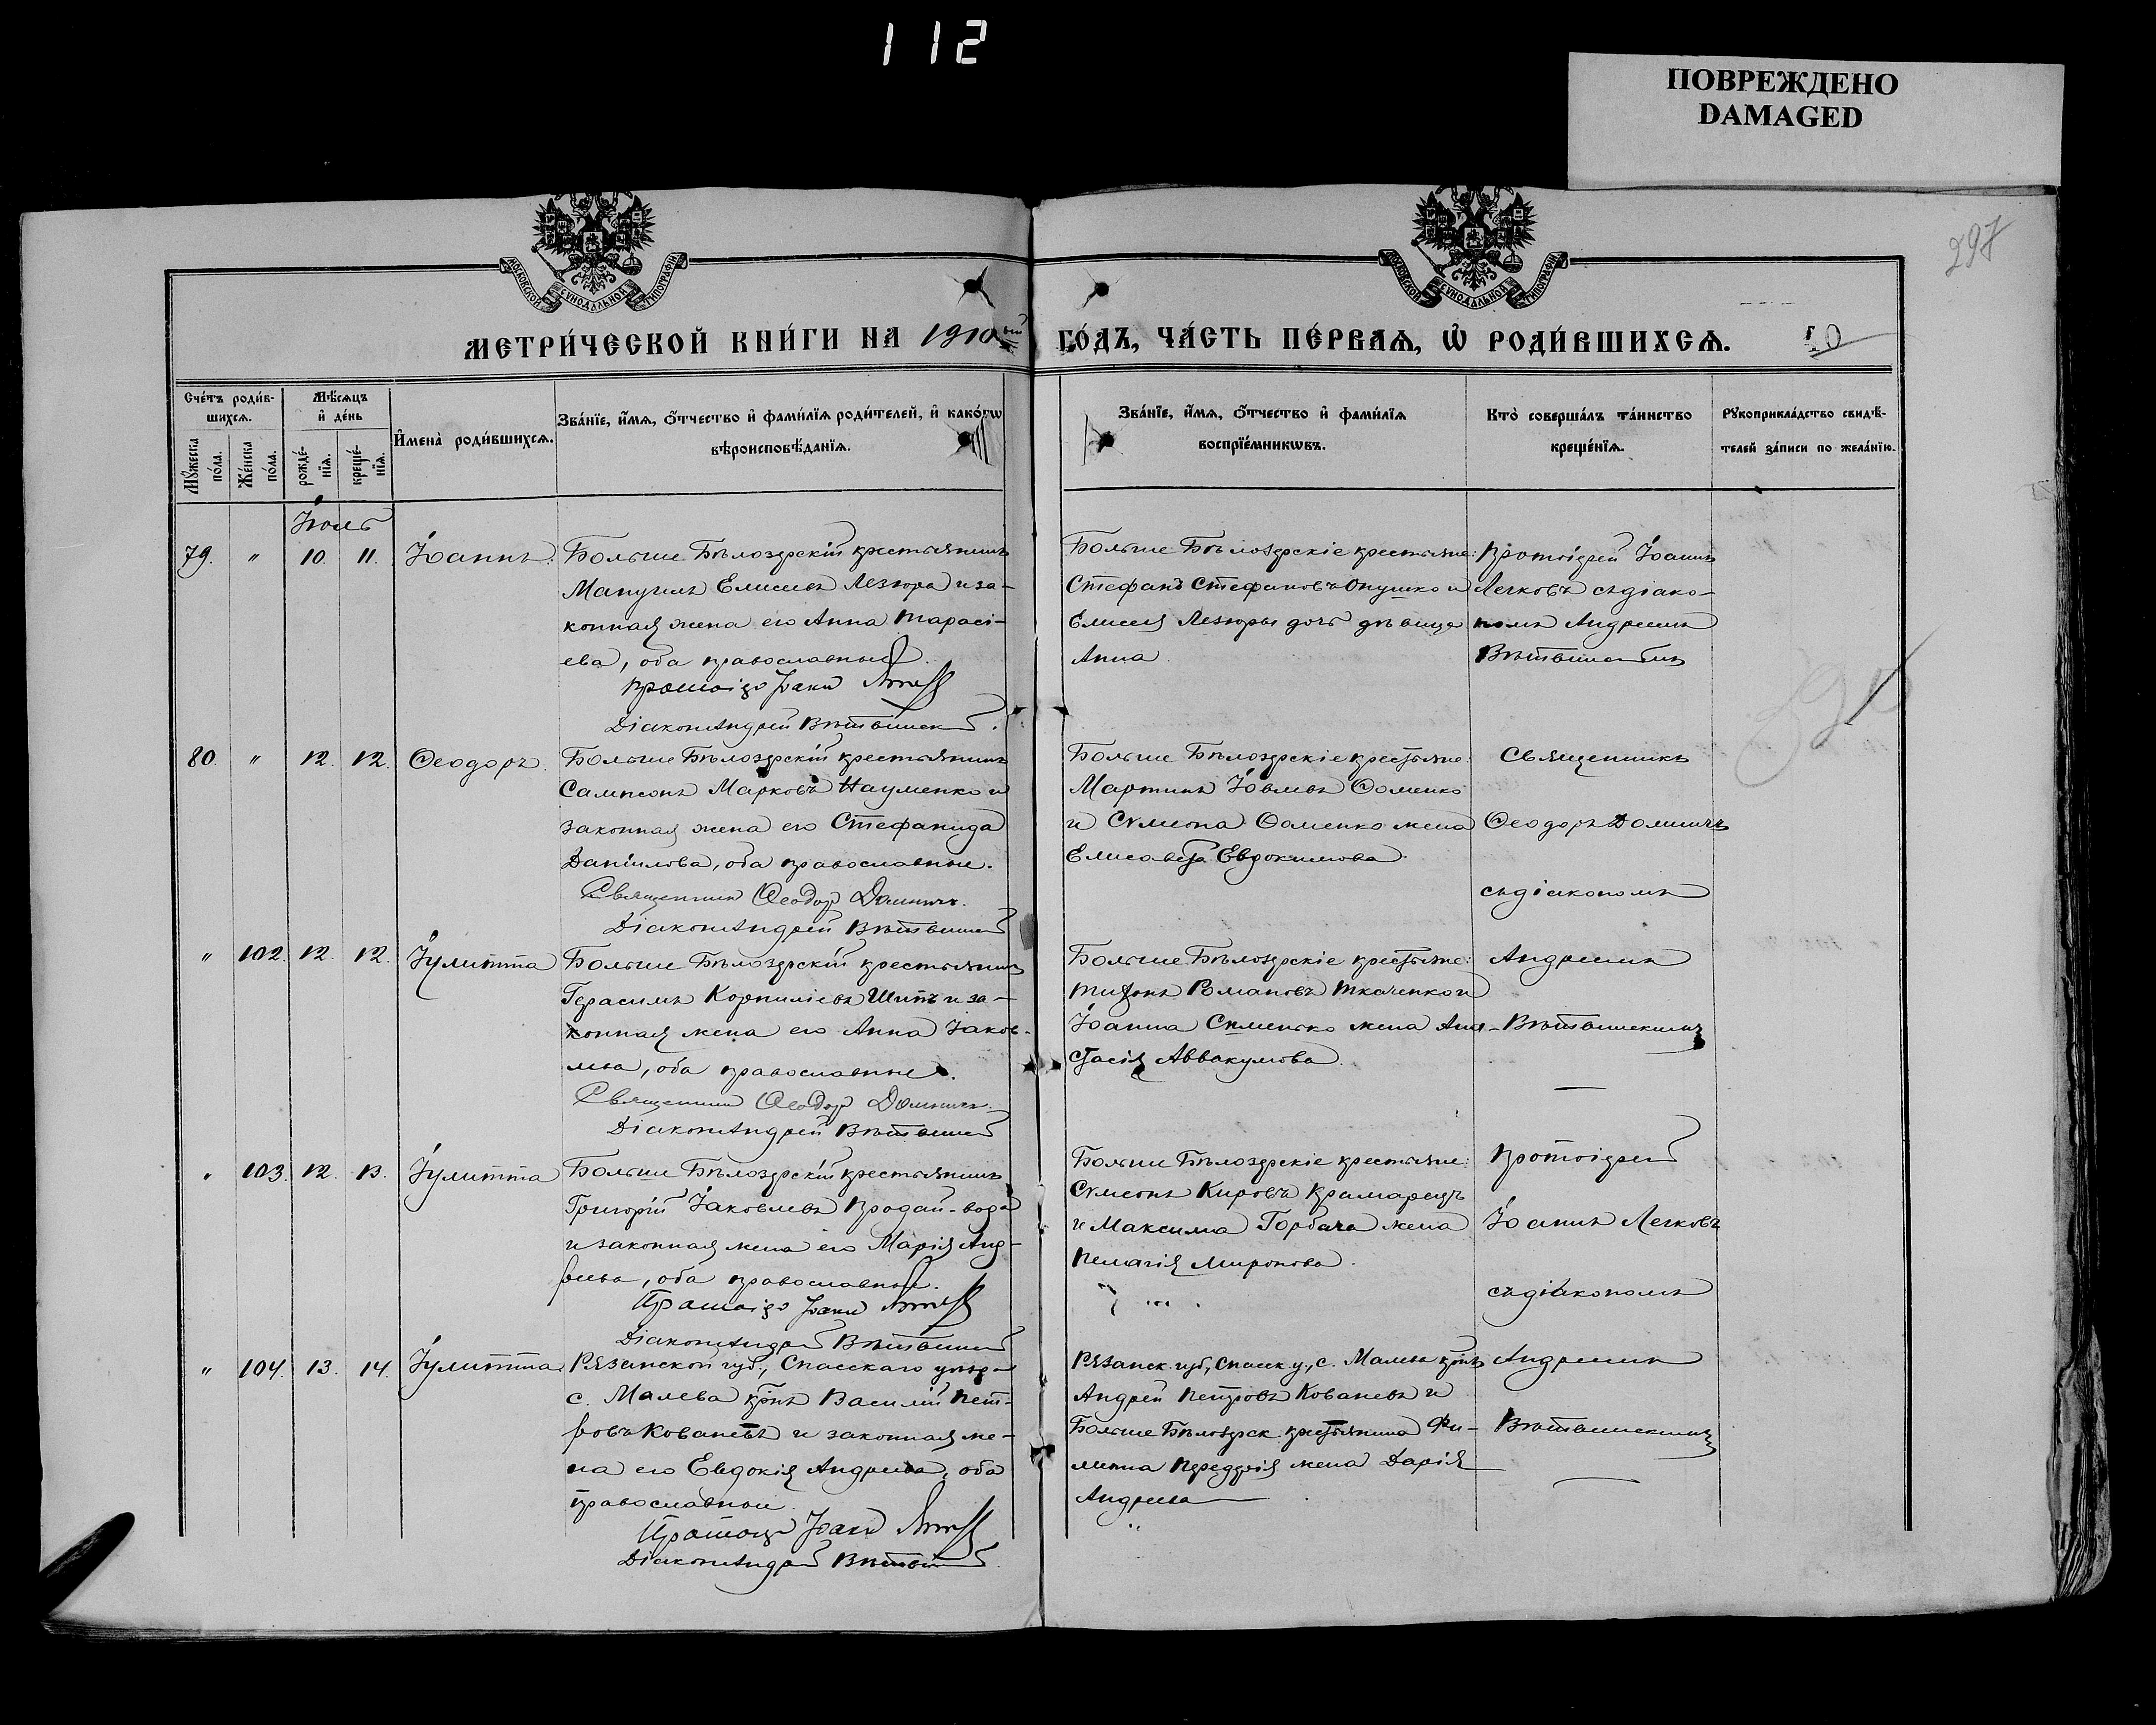 112
ПОВРЕЖДЕНО
DAMAGED
297
МОСКОВСКОЙ СѴНОДАЛЬНОЙ ТИПОГРАФІИ
МОСКОВСКОЙ СѴНОДАЛЬНОЙ ТИПОГРАФІИ
МЕТРИ́ЧЕСКОЙ КНИ́ГИ НА 1910ый ГО́ДЪ, ЧА́СТЬ ПЕ́РВАѦ, Ѽ РОДИ́ВШИХСѦ.
Сче́тъ роди́в-
шихсѧ.
Мꙋ́жеска по́ла.
Же́нска по́ла.
Мѣ́сѧцъ
и҆ де́нь
рожде́-
нїѧ.
креще́-
нїѧ.
И҆мена̀ роди́вшихсѧ.
Зва́нїе, и҆́мѧ, ѻ҆́тчество и҆ фами́лїѧ роди́телей, и҆ како́гѡ
вѣроисповѣ́данїѧ.
Зва́нїе, и҆́мѧ, ѻ҆́тчество и҆ фами́лїѧ
воспрїе́мникѡвъ.
Кто̀ соверша́лъ та́инство
креще́нїѧ.
Рꙋкоприкла́дство свидѣ́-
телей за́писи по жела́нїю.
Іюль
79. " 10. 11. Іоаннъ.
Больше Бѣлозерскій крестьянинъ
Мануилъ Елисеевъ Лезюра и за-
конная жена его Анна Тарасі-
ева, оба православные.
Протоіер Іоанн
Діаконъ Андрей Вѣтвинск
Больше Бѣлозерскіе крестьяне:
Стефанъ Стефановъ Онушко и
Елисея Лезюры дочь дѣвица
Анна
Протоіерей Іоаннъ
Легковъ съ діако-
номъ Андреемъ
Вѣтвинскимъ
80. " 12. 12. Ѳеодоръ.
Больше Бѣлозерскій крестьянинъ
Сампсонъ Марковъ Науменко и
законная жена его Стефанида
Даніилова, оба православные.
Священник Ѳеодор Доминич
Діаконъ Андрей Вѣтвинск
Больше Бѣлозерскіе крестьяне:
Мартинъ Іовлевъ Ѳоменко
и Сѵмеона Ѳоменко жена
Елисавета Евдокимова.
Священникъ
Ѳеодоръ Доминичъ
съ діакономъ
" 102. 12. 12. Іулитта
Больше Бѣлозерскій крестьянинъ
Герасимъ Корниліевъ Шитъ и за-
конная жена его Анна Іаков-
лева, оба православные.
Священник Ѳеодор Доминич
Діаконъ Андрей Вѣтвинск
Больше Бѣлозерскіе крестьяне:
Тихонъ Романовъ Ткаченко и
Іоанна Симненко жена Ана-
стасія Аввакумова.
Андреемъ
Вѣтвинскимъ
" 103. 12. 13. Іулитта
Больше Бѣлозерскій крестьянинъ
Григорій Іаковлевъ Продай-вода
и законная жена его Марія Анд-
реева, оба православные.
Протоіер Іоанн
Діаконъ Андрей Вѣтвинск
Больше Бѣлозерскіе крестьяне:
Сѵмеонъ Кировъ Крамарецъ
и Максима Горбача жена
Пелагія Миронова.
Протоіерей
Іоаннъ Легковъ
съ діакономъ
" 104. 13. 14. Іулитта
Рязанской губ., Спасскаго уѣзда
с. Малева крнъ Василій Пет-
ровъ Ковалевъ и законная же-
на его Евдокія Андреева, оба
православные.
Протоіер Іоанн
Діаконъ Андрей Вѣтвинск
Рязанск. губ., Спасск. у., с. Малева крнъ
Андрей Петровъ Ковалевъ и
Больше Бѣлозерск. крестьянина Фи-
липпа Передерія жена Дарія
Андреева
Андреемъ
Вѣтвинскимъ